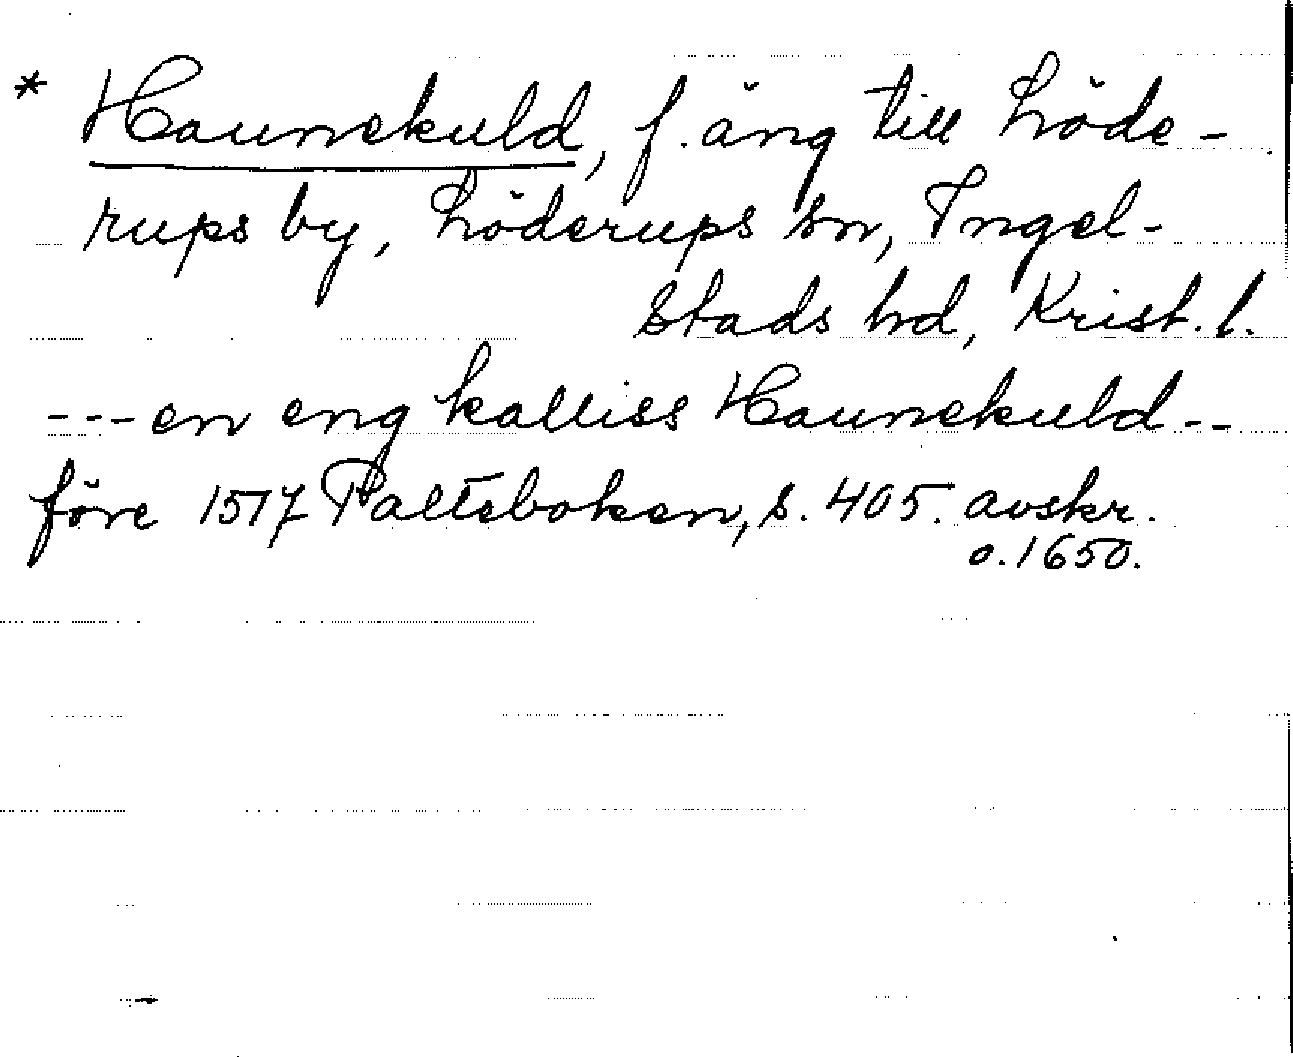 * Haunekuld, f. äng till Löde-
rups by, Löderups sn, Ingel-
stads hd, Krist. l.
---en eng kalliss Haunekuld--
före 1517 Palteboken, s. 405. avskr.
o. 1650.